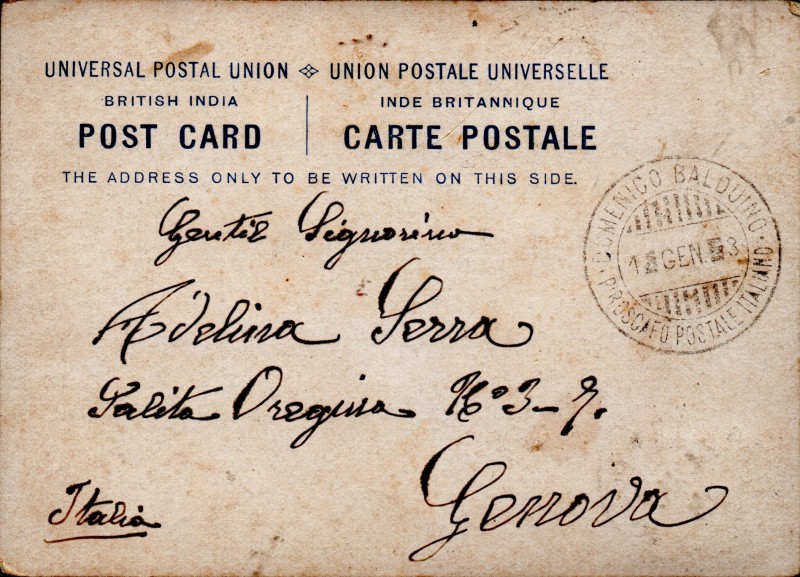 UNIVERSAL POSTAL UNION UNION POSTALE UNIVERSELLE
BRITISH INDIA INDE BRITANNIQUE
POST CARD CARTE POSTALE
THE ADDRESS ONLY TO BE WRITTEN ON THIS SIDE.
DOMENICO BALDUINO
GEN. 3
PIROSCAFO POSTALE ITALIANO
Gentil Signorina
Adelina Serra
Salita Oregina No 3-7.
Genova
Italia